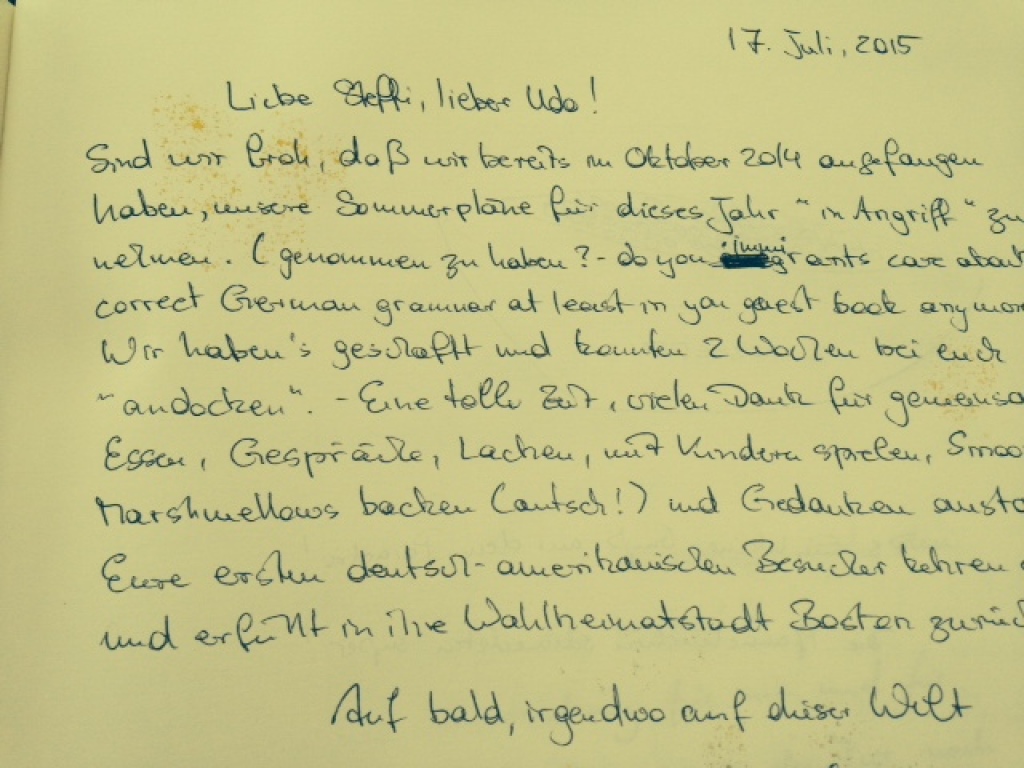 17. Juli, 2015
Liebe Steffi, lieber Udo!
Sind wir froh, daß wir bereits im Oktober 2014 angefangen
haben, unsere Sommerpläne für dieses Jahr "in Angriff" zu
nehmen. (genommen zu haben? - do you immigrants care about
correct German grammar at least in you guest book anymor
Wir haben's geschafft und konnten 2 Wochen bei euch
"andocken". - Eine tolle Zeit, vielen Dank für gemeinsa
Essen, Gespräche, Lachen, mit Kindern spielen, Smoo
Marshmellows backen (autsch!) und Gedanken austa
Eure ersten deutsch-amerikanischen Besucher kehren
und erfüllt in ihre Wahlheimatstadt Boston zurüc
Auf bald, irgendwo auf dieser Welt